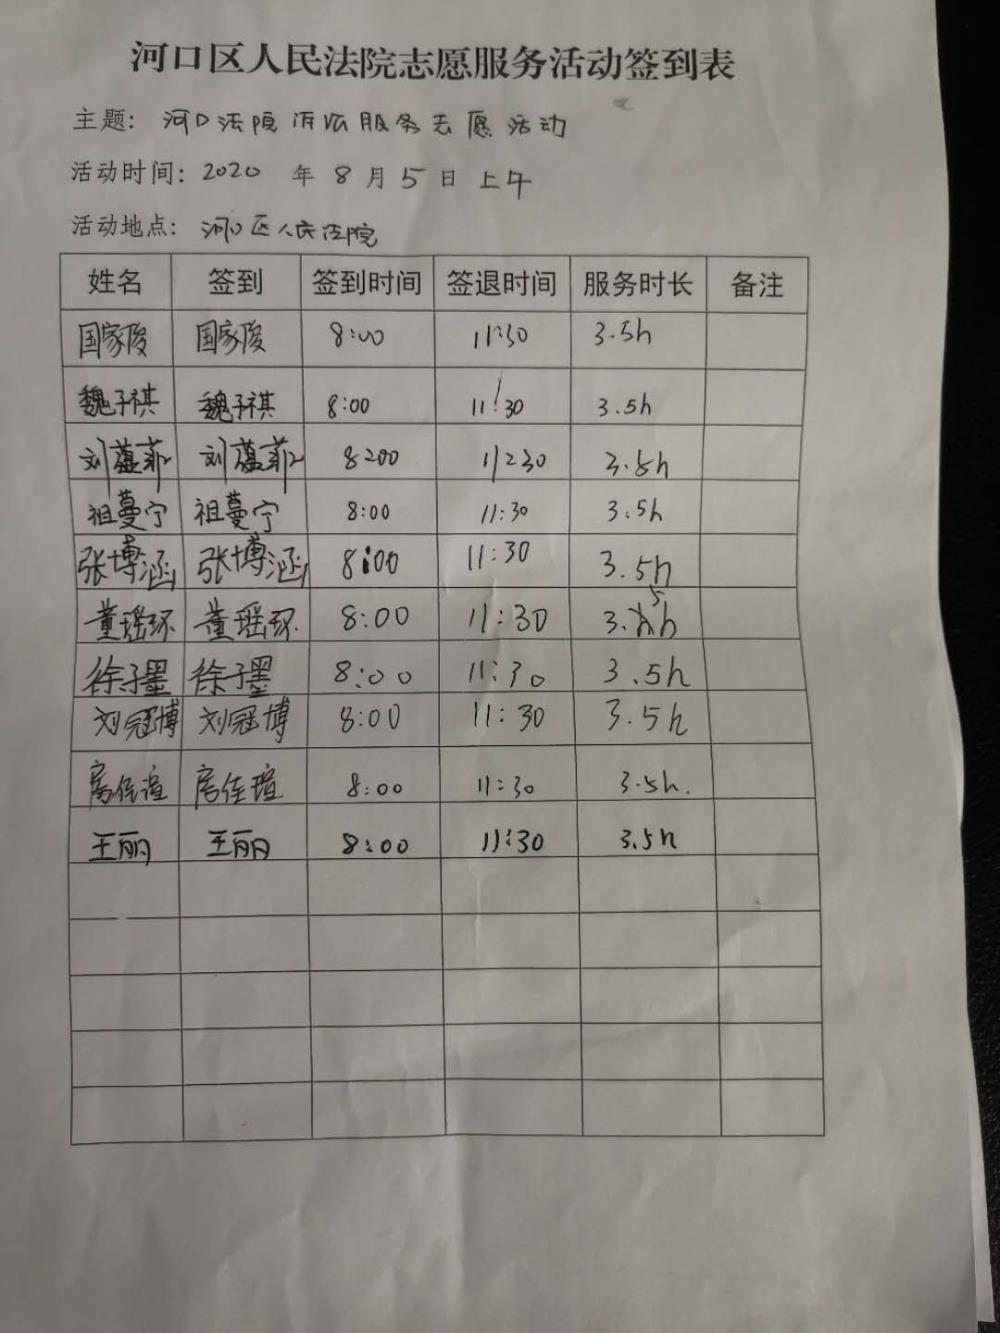 河口区人民法院志愿服务活动签到表
主题: 河口法院诉讼服务志愿活动
活动时间: 2020 年 8 月 5 日 上午
活动地点: 河口区人民法院
姓名 签到 签到时间 签退时间 服务时长 备注
国家俊 国家俊 8:00 11:30 3.5h
魏子祺 魏子祺 8:00 11:30 3.5h
刘蕴菲 刘蕴菲 8:00 11:30 3.5h
祖蔓宁 祖蔓宁 8:00 11:30 3.5h
张博涵 张博涵 8:00 11:30 3.5h
董瑶环 董瑶环 8:00 11:30 3.5h
徐子墨 徐子墨 8:00 11:30 3.5h
刘冠博 刘冠博 8:00 11:30 3.5h
房佳瑄 房佳瑄 8:00 11:30 3.5h.
王丽 王丽 8:00 11:30 3.5h